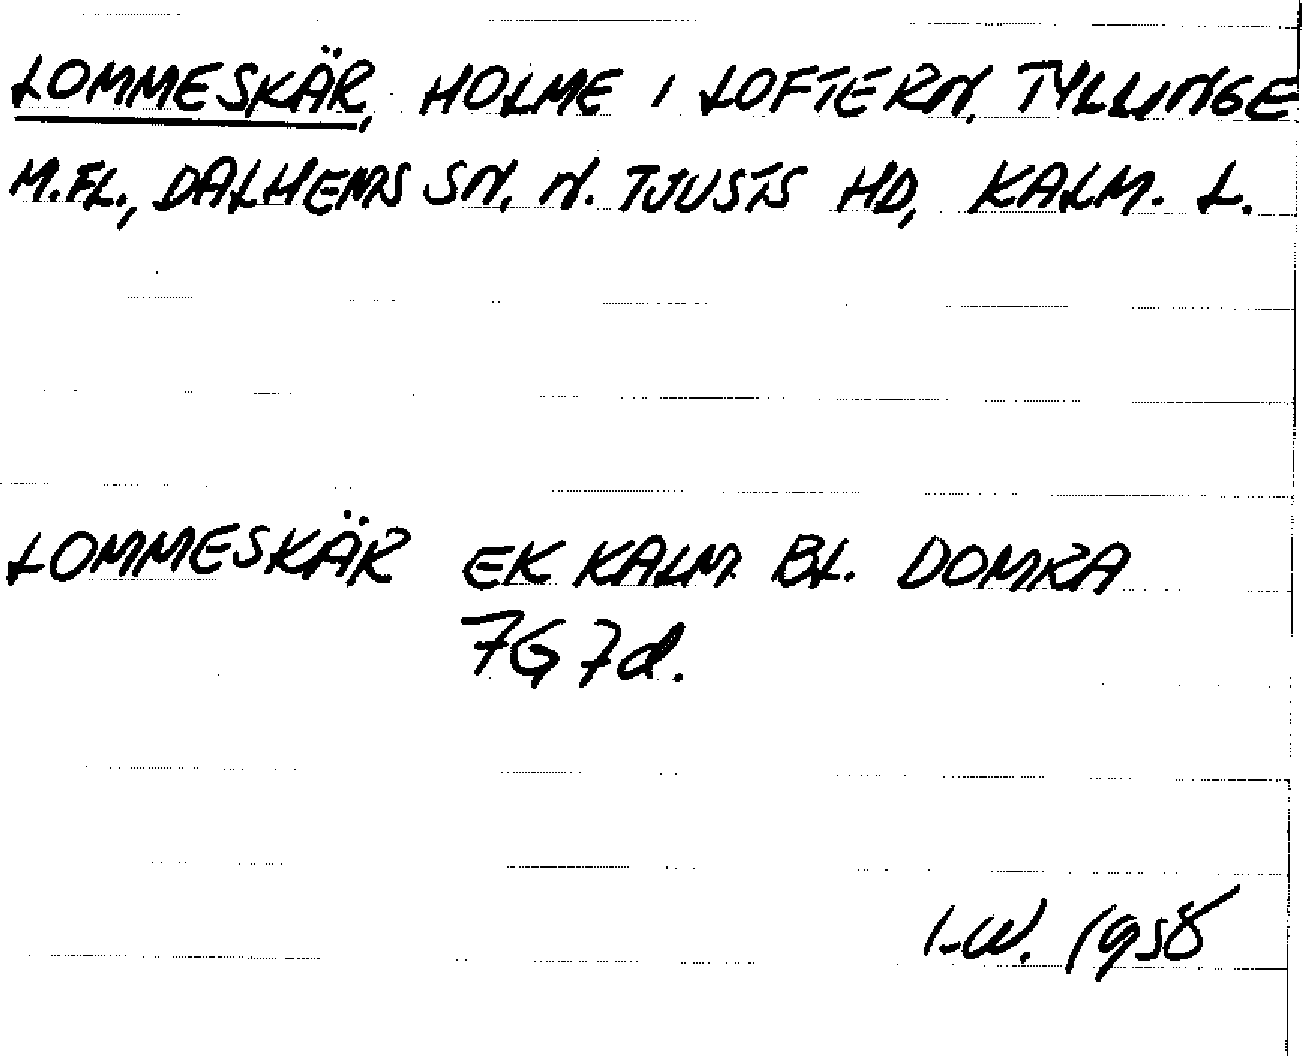 LOMMESKÄR, HOLME I LOFTERN, TYLLINGE
M.FL., DALHEMS SN, N. TJUSTS HD, KALM. L.
LOMMESKÄR EK KALM. BL. DOMRA
7G 7d.
I-W. 1958